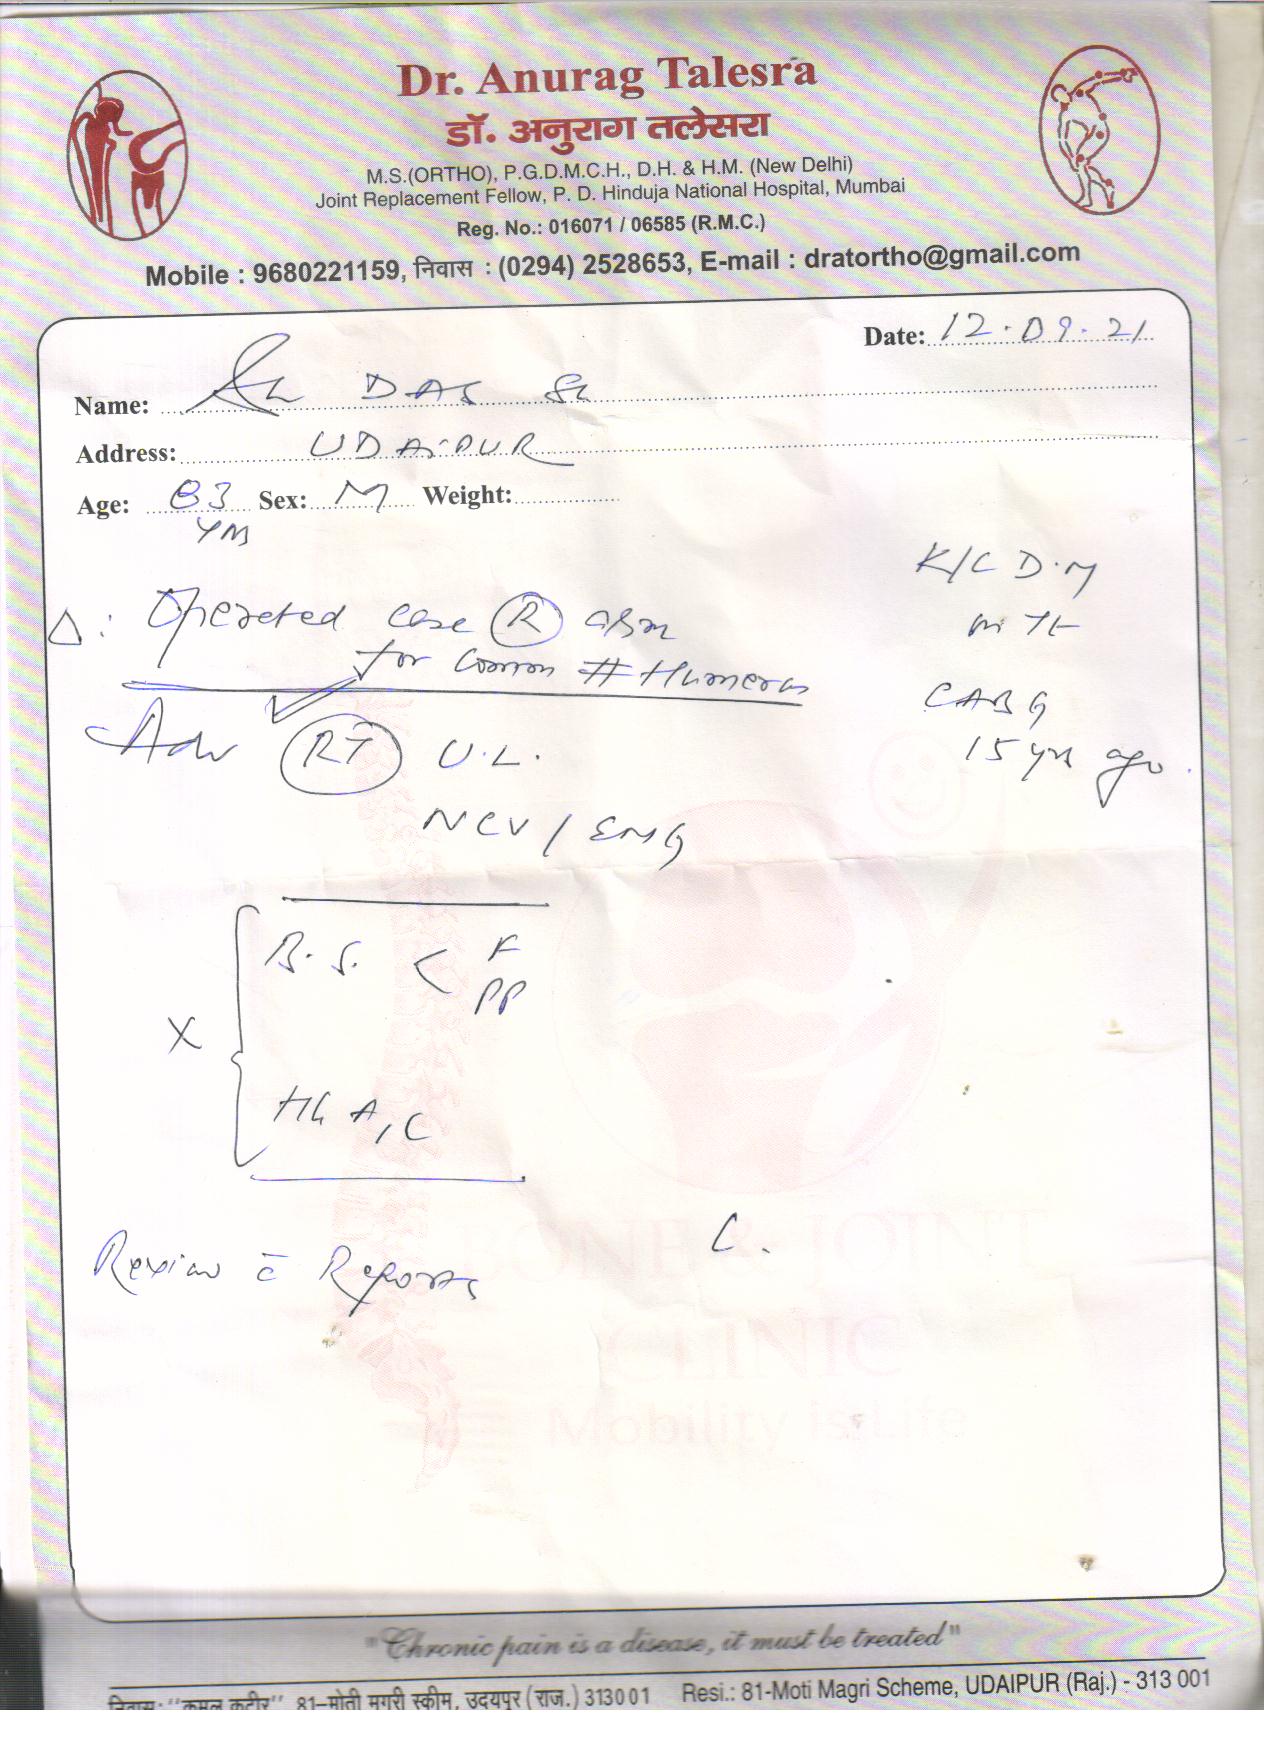 Dr. Anurag Talesra
डॉ. अनुराग तलेसरा
M.S.(ORTHO), P.G.D.M.C.H., D.H. & H.M. (New Delhi)
Joint Replacement Fellow, P. D. Hinduja National Hospital, Mumbai
Reg. No.: 016071 / 06585 (R.M.C.)
Mobile : 9680221159, निवास : (0294) 2528653, E-mail : dratortho@gmail.com
Date: 12.09.21
Name: DAS
Address: UDAIPUR
Age: 83 Sex: M Weight:
K/C D.M
Δ: Opereted case (R)
for # Humerus
CABG
15 yrs ago.
Adv (RT) U.L.
NCV / EMG
B.S. < F
PP
X
Review c̄ Reports
BONE & JOINT
CLINIC
Mobility is Life
"Chronic pain is a disease, it must be treated"
निवास: "कमल कुटीर" 81–मोती मगरी स्कीम, उदयपुर (राज.) 313001 Resi.: 81-Moti Magri Scheme, UDAIPUR (Raj.) - 313 001